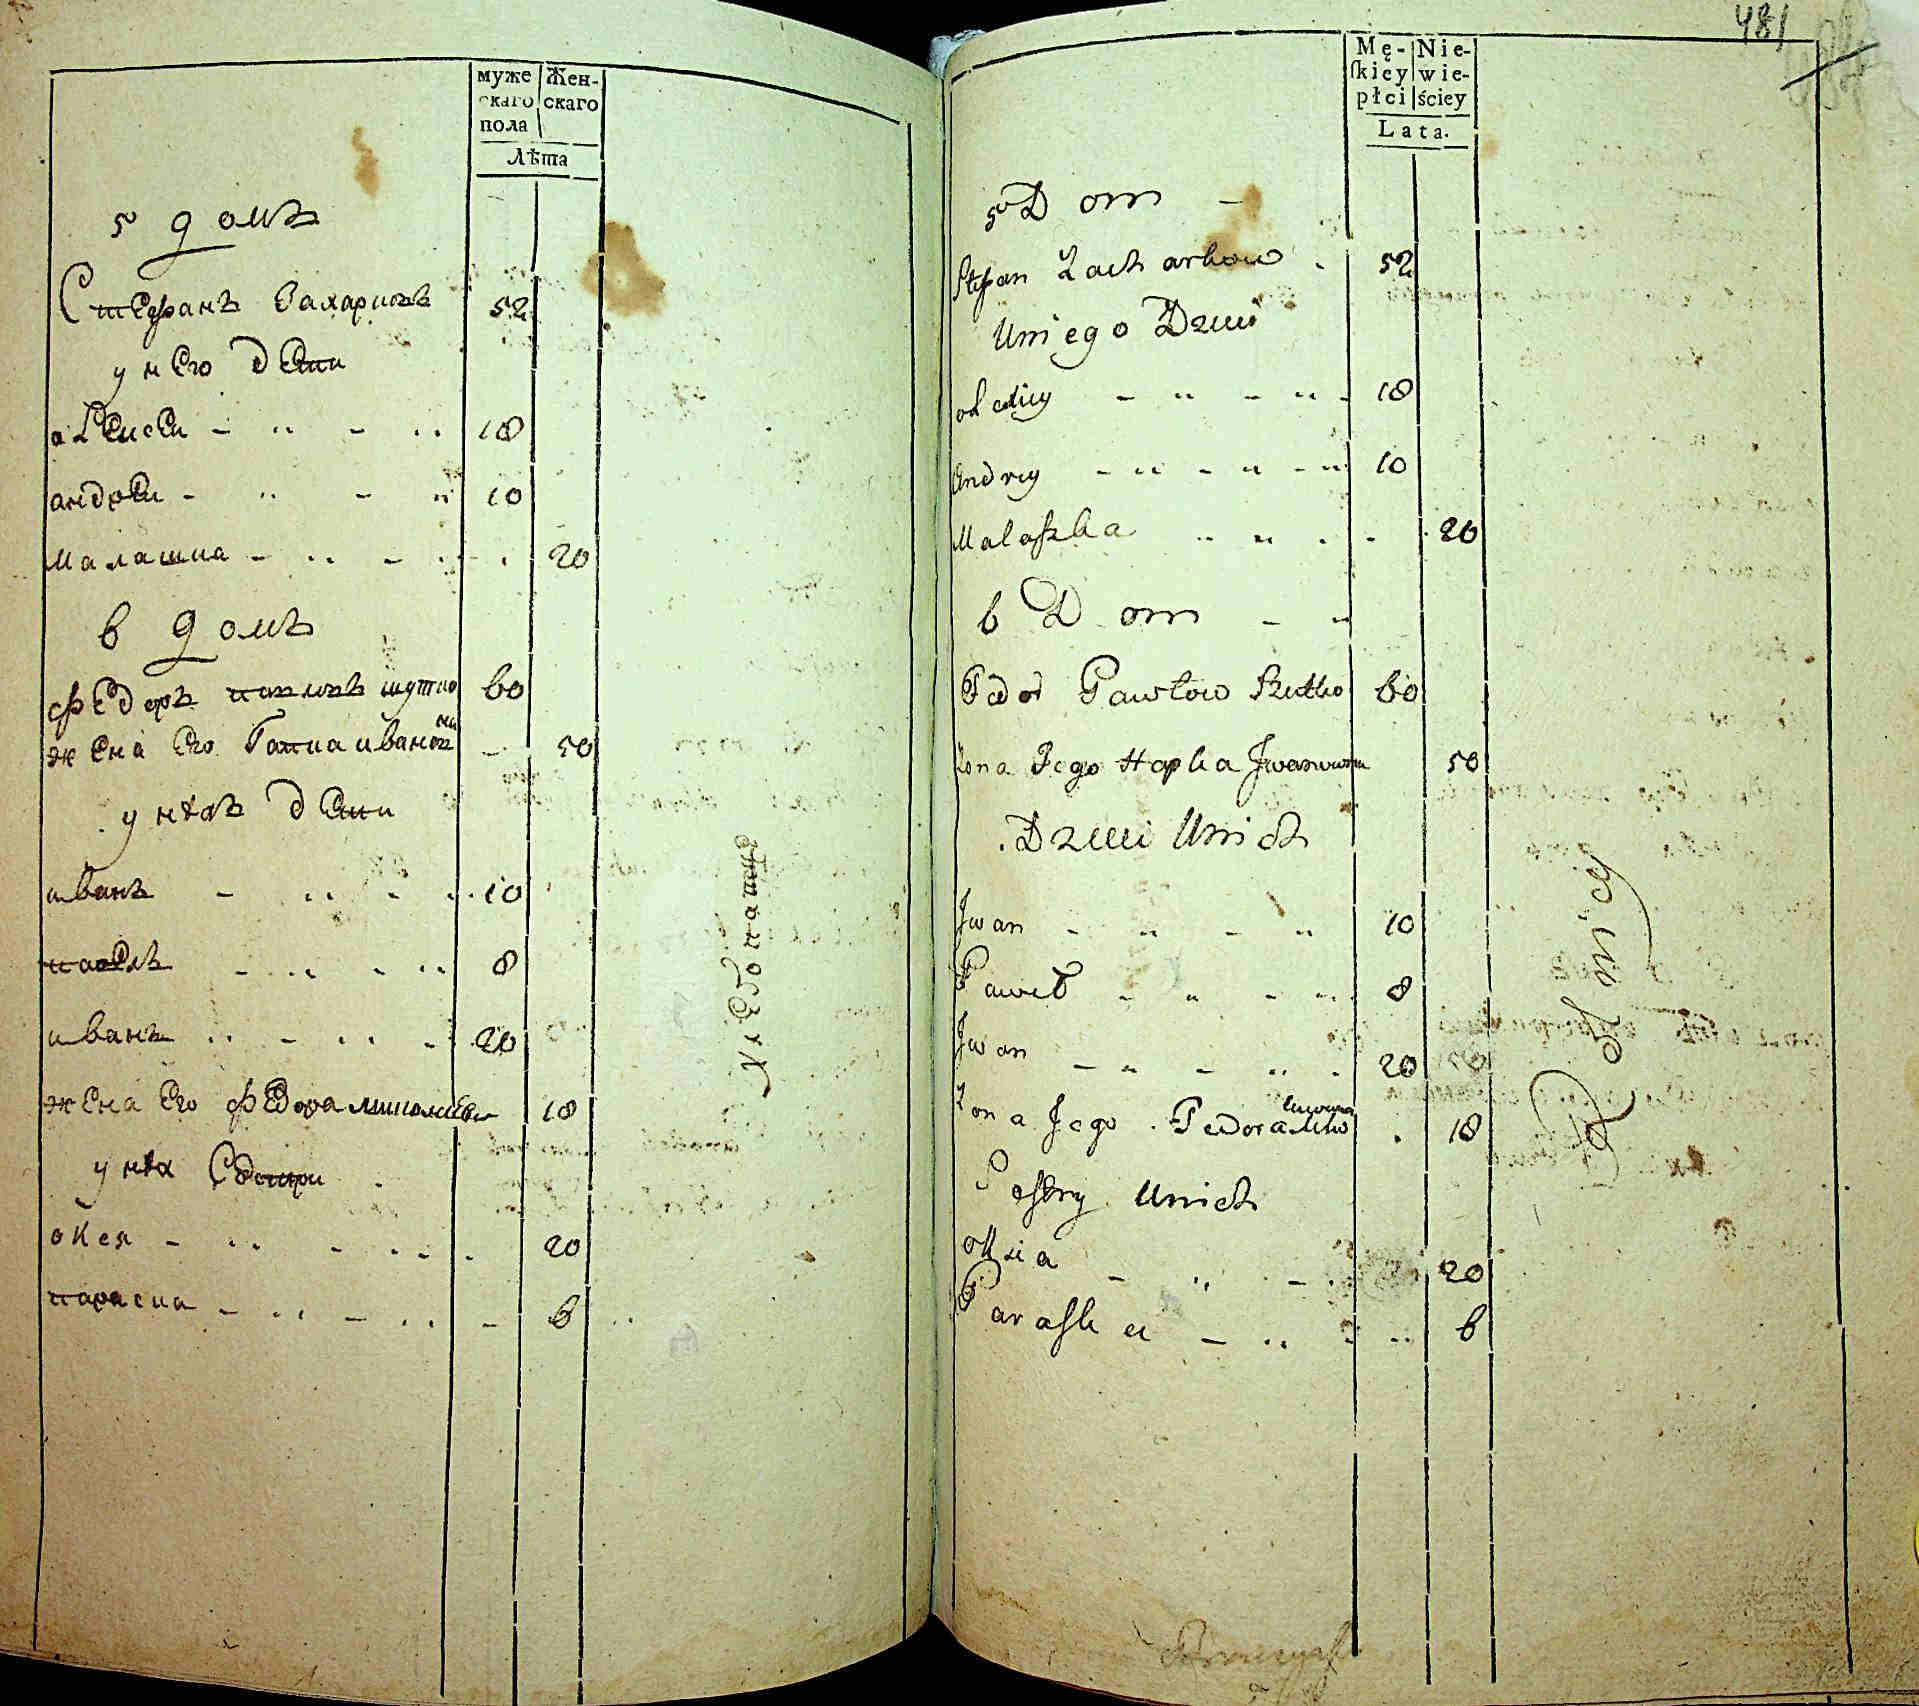 муже скаго пола
Жен- скаго
Лѣта
5 домъ
Стефанъ Захаровъ 52
у него дети
алексеи 18
андреи 10
малашка 20
6 домъ
федоръ павловъ шутко 60
жена его Гапка иванов на 50
у нихъ дети
иванъ 10
павелъ 8
иванъ 20
жена его федора 18
у них сестри
окся 20
параска 6
481
Mę- ſkiey płci
Nie- wie- ściey
Lata.
5 Dom
Stefan Zacharkow 52
U niego Dzieci
olexiey 18
Andrey 10
Malaszka 20
6 Dom
Fedor Pawłow Szutko 60
Żona Jego Hapka Jwanowna 50
Dzieci U nich
Jwan 10
Paweł 8
Jwan 20
Żona Jego Fedora 18
Sestry U nich
oksia 20
Paraska 6